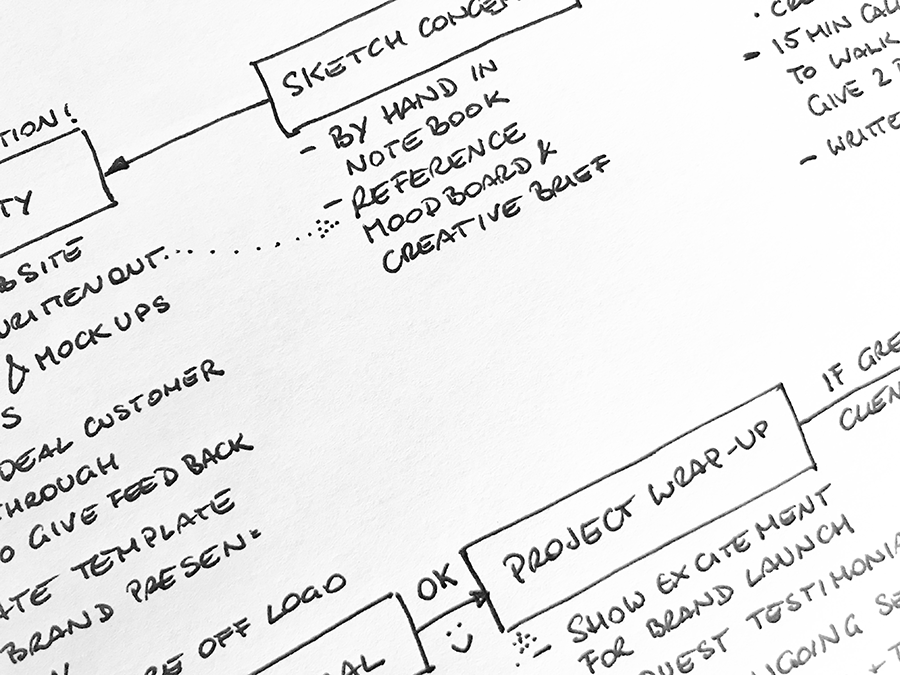 SKETCH CONCEP
- BY HAND IN
NOTEBOOK
- REFERENCE
MOODBOARD &
CREATIVE BRIEF
- 15 MIN CALL
TO WALK
GIVE 2
- WRITTE
TION!
TY
BSITE
WRITTEN OUT
& MOCKUPS
S
DEAL CUSTOMER
THROUGH
O GIVE FEEDBACK
ATE TEMPLATE
BRAND PRESEN-
RE OFF LOGO
AL
OK
IF GRE
CLIEN
PROJECT WRAP-UP
- SHOW EXCITEMENT
FOR BRAND LAUNCH
QUEST TESTIMONIA
GOING SE